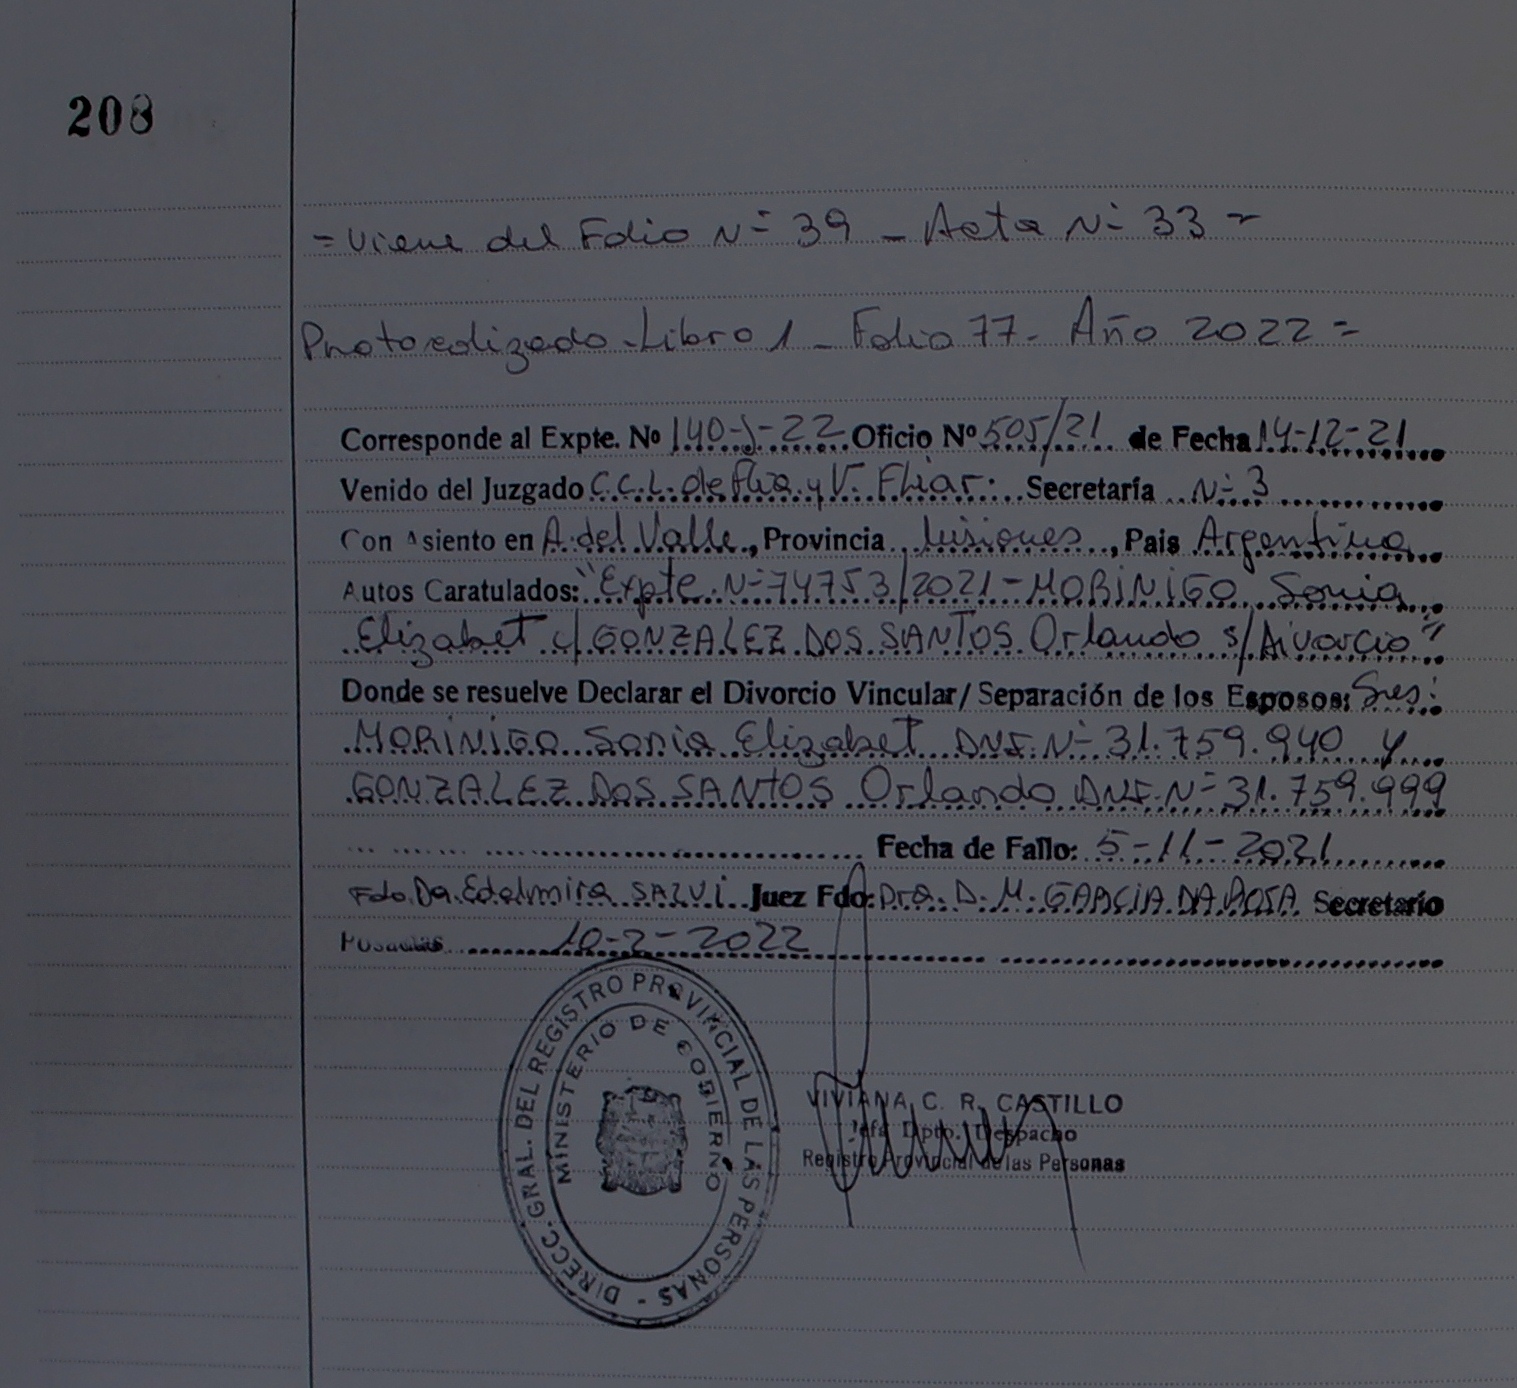 208
= Viene del Folio Nº 39 - Acta Nº 33 =
Protocolizado - Libro 1 - Folio 77 - Año 2022 =
Corresponde al Expte. Nº 140-J-22 Oficio Nº 505/21 de Fecha 14-12-21
Venido del Juzgado C.C.L. de flia y V. Fliar. Secretaría Nº 3
Con Asiento en A. del Valle, Provincia Misiones, Pais Argentina
Autos Caratulados: "Expte. Nº 74753/2021 - MORINIGO Sonia
Elizabet c/ GONZALEZ DOS SANTOS Orlando s/ Divorcio"
Donde se resuelve Declarar el Divorcio Vincular/ Separación de los Esposos: Sres:
MORINIGO Sonia Elizabet DNI. Nº 31.759.940 y
GONZALEZ DOS SANTOS Orlando DNI. Nº 31.759.999
Fecha de Fallo: 5-11-2021
Fdo. Da. Edelmira SALVI Juez Fdo: Dra. D. M. GARCIA DA ROSA Secretario
Posadas 10-2-2022
DIRECC. GRAL. DEL REGISTRO PROVINCIAL DE LAS PERSONAS -
MINISTERIO DE GOBIERNO
VIVIANA C. R. CASTILLO
Jefa Dpto. Despacho
Registro Provincial de las Personas